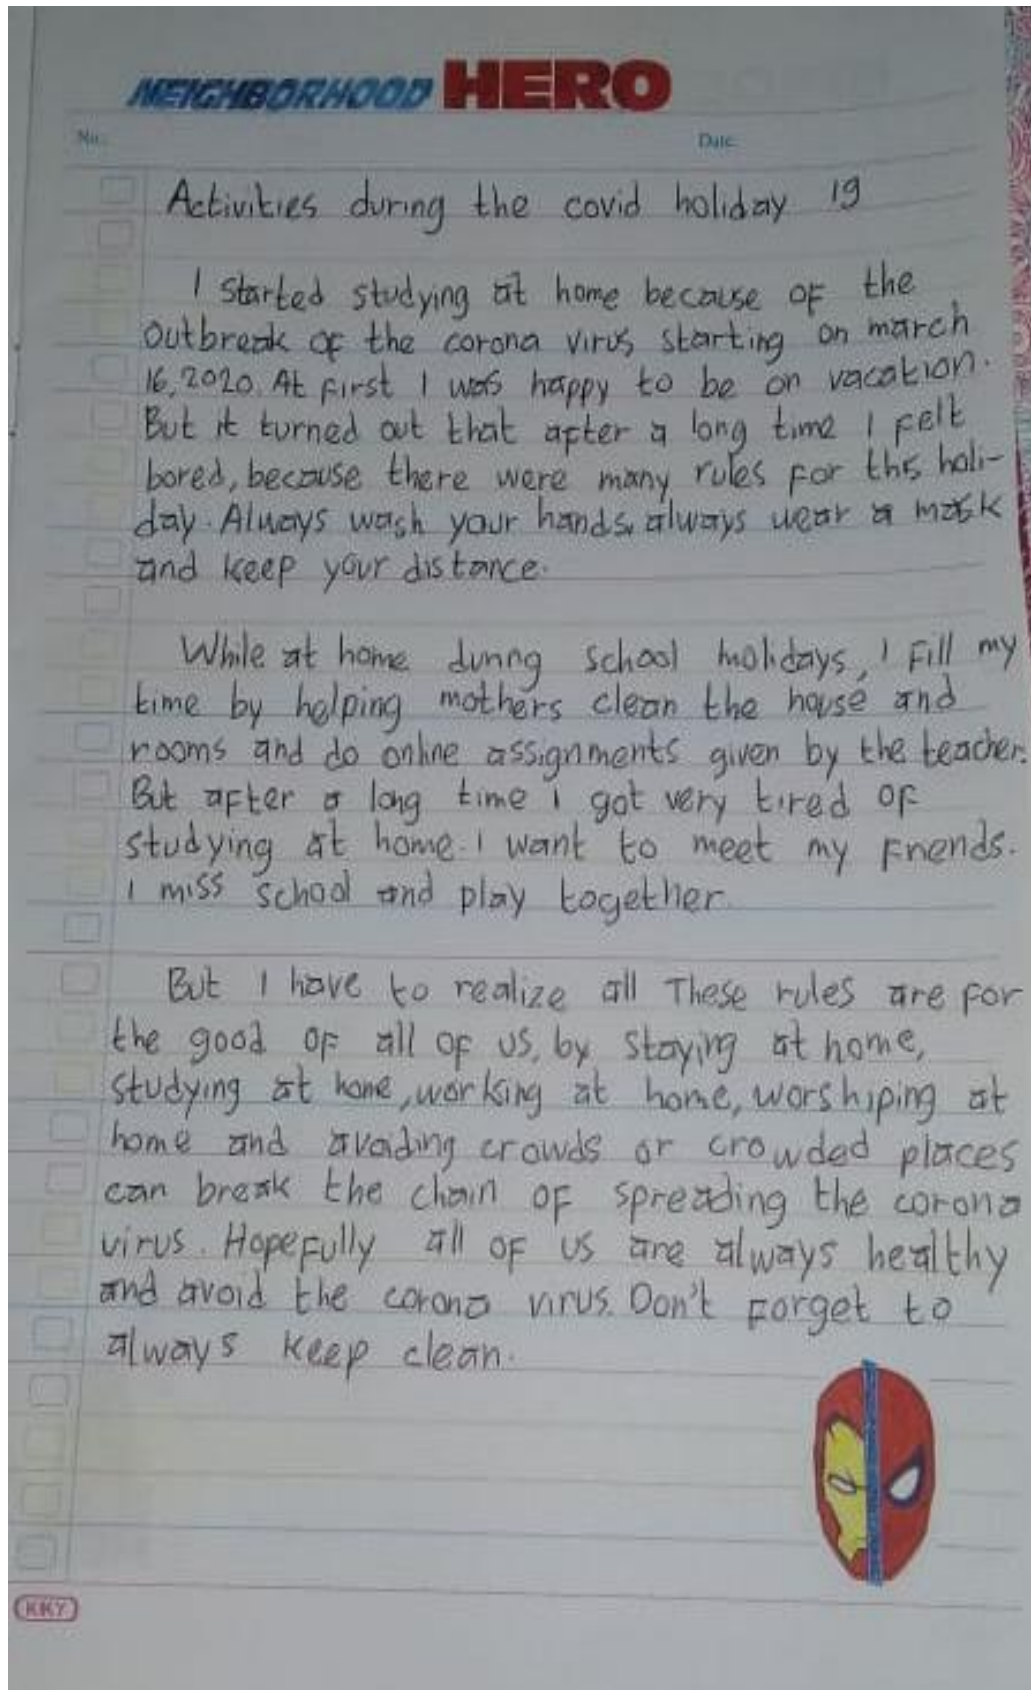 NEIGHBORHOOD HERO
No.: Date:
Activities during the covid holiday 19
I started studying at home because of the
outbreak of the corona virus starting on march
16, 2020. At first I was happy to be on vacation.
But it turned out that after a long time I felt
bored, because there were many rules for this holi-
day. Always wash your hands, always wear a mask
and keep your distance.
While at home during school holidays, I fill my
time by helping mothers clean the house and
rooms and do online assignments given by the teacher.
But after a long time i got very tired of
studying at home. I want to meet my friends.
I miss school and play together.
But I have to realize all These rules are for
the good of all of us, by staying at home,
studying at home, working at home, worshiping at
home and avoiding crowds or crowded places
can break the chain of spreading the corona
virus. Hopefully all of us are always healthy
and avoid the corona virus. Don't forget to
always keep clean.
KKY